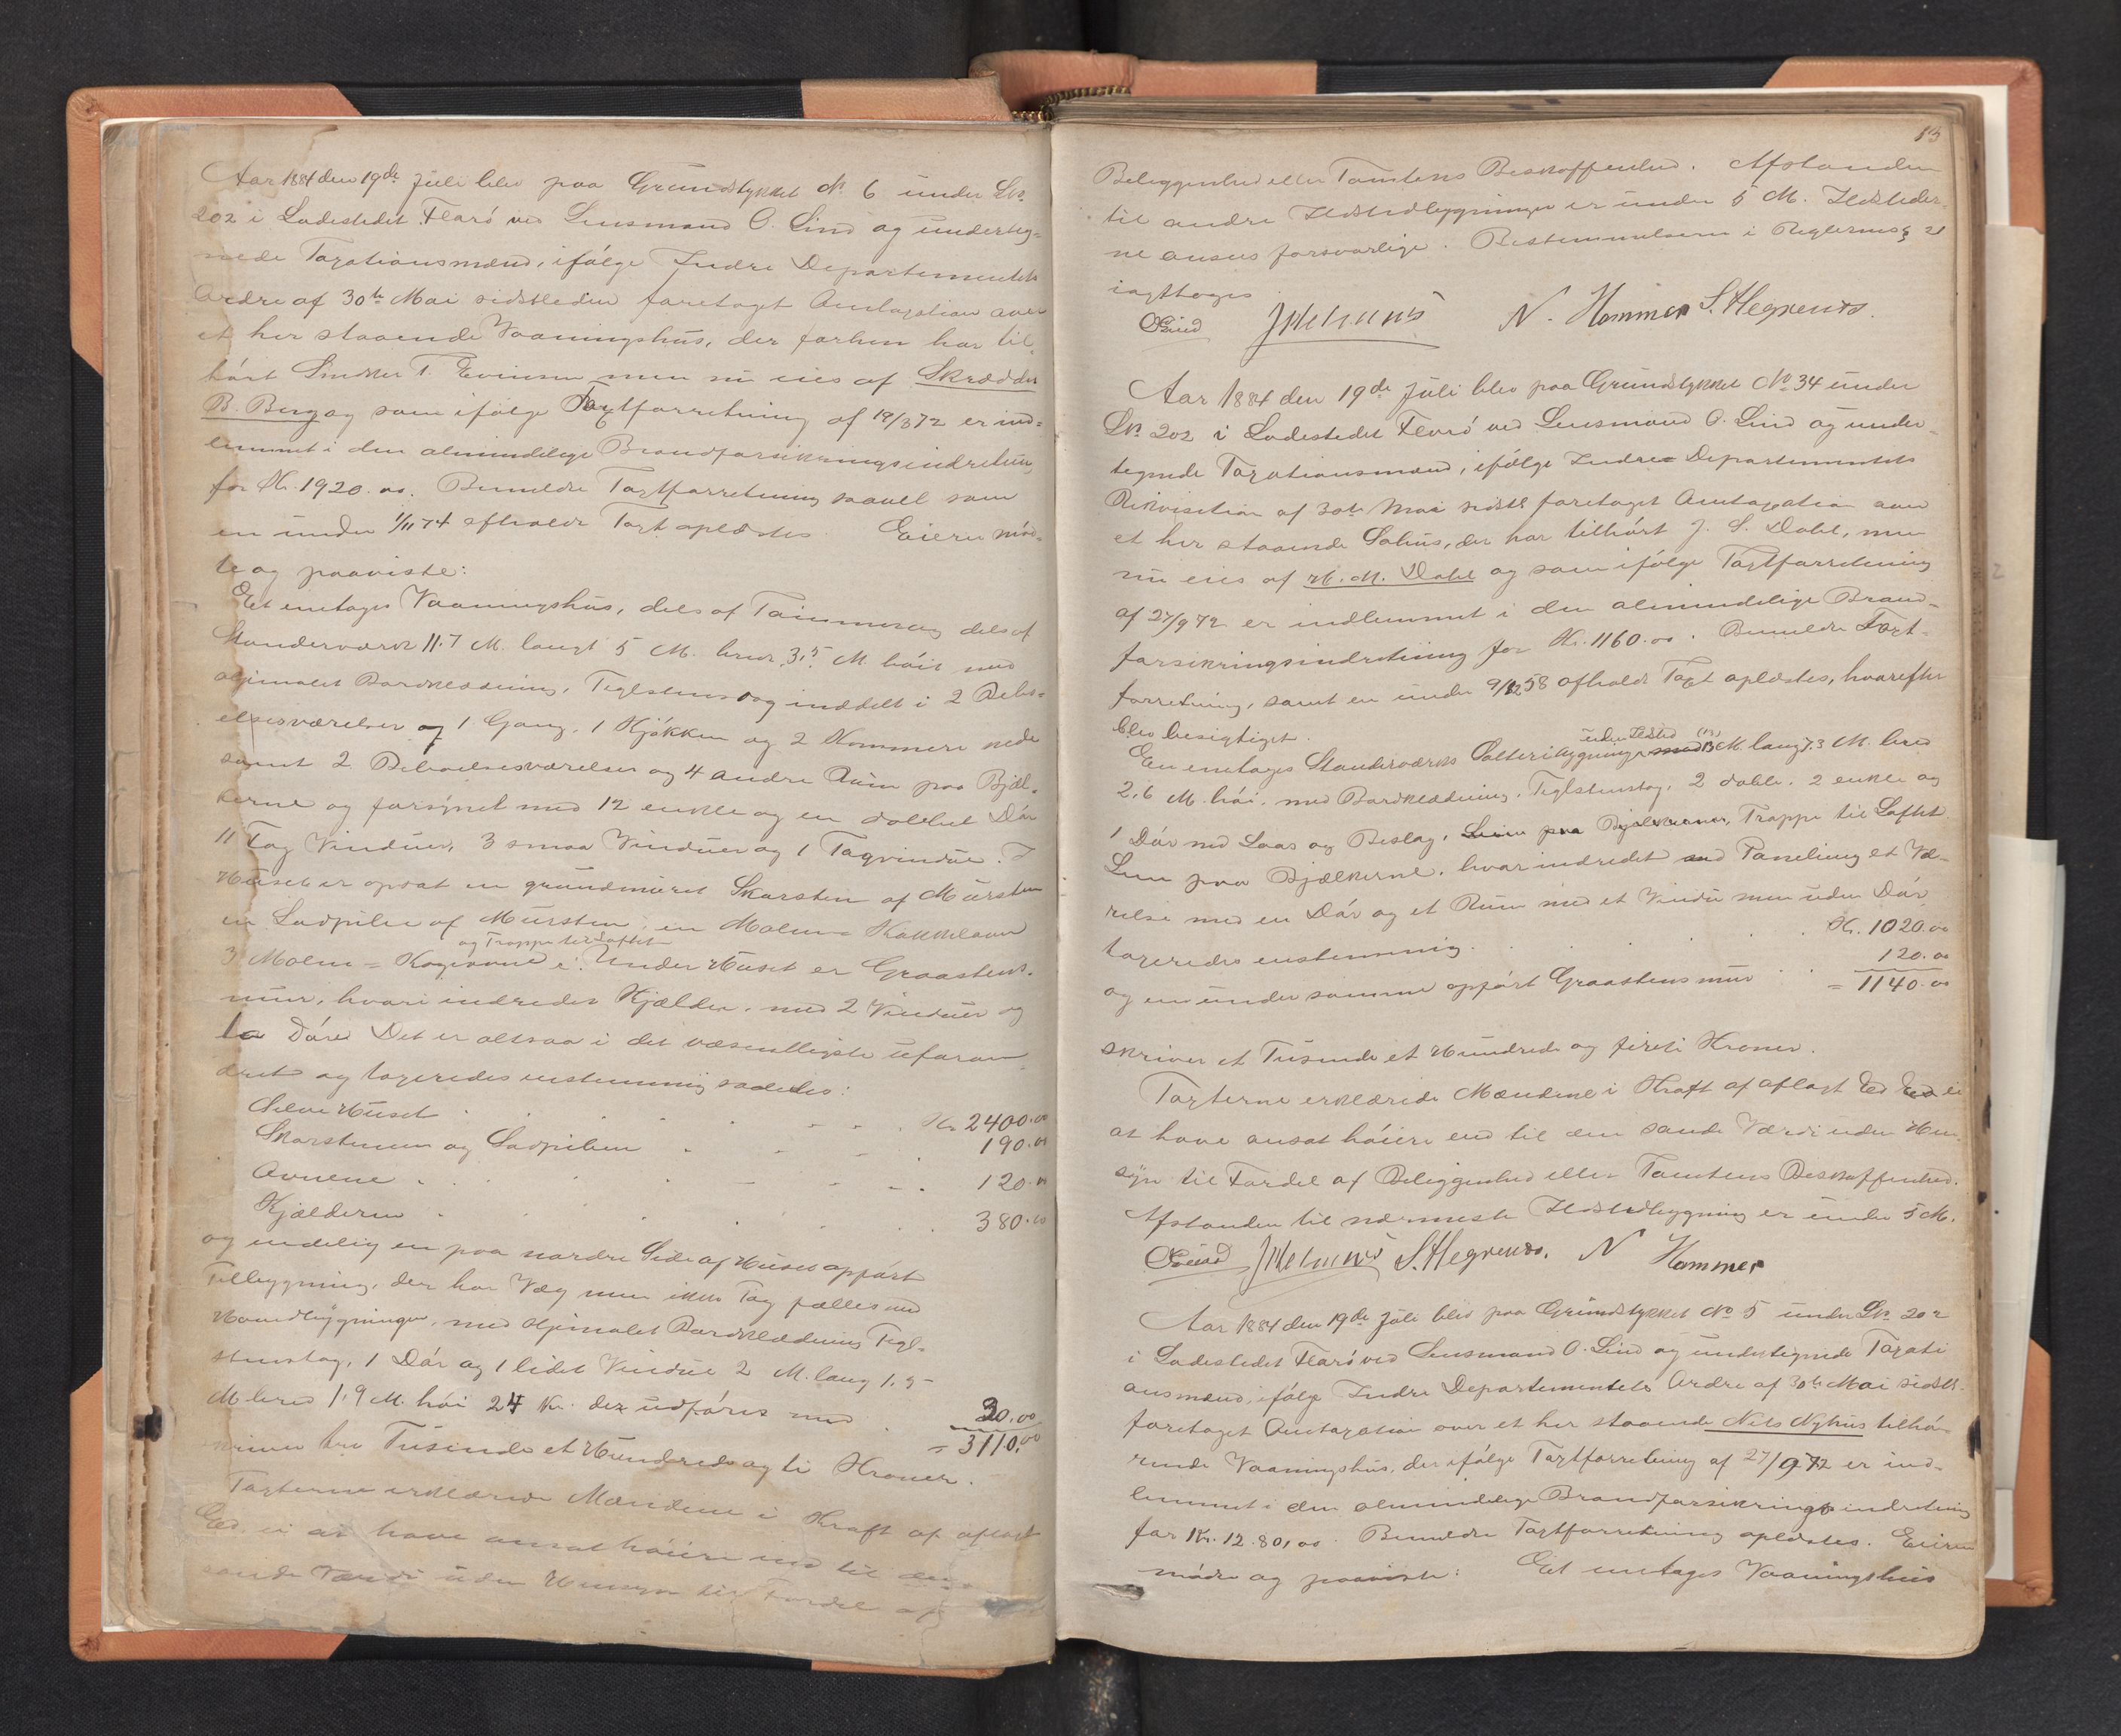 Aar 1884 den 19de Juli blev paa Grundstykket No 6 under Lnr.
202 i Ladestedet Florö ved Lensmand O. Lind og underteg-
nede Taxationsmænd, ifölge Indre Departementets
Ordre af 30te Mai sidstleden foretaget Omtaxation over
et her staaende Vaaningshus, der forhen har til-
hört Snedker T. Evensen men nu eies af Skrædder
B. Berg og som ifölge Taxtforretning af 19/8 72 er ind-
lemmet i den almindelige Brandforsikringsindretning
for Kr. 1920.00. Bemeldte Taxtforretning saavel som
en under 1/11 74 afholdt Taxt oplæstes. Eieren möd-
te og paaviste:
Et enetages Vaaningshus, dels af Tømmer og dels af
Standerværk 11.7 M. langt 5 M. bred 3,5 M. höit med
oljemalet Bordklædning, Teglstenstag inddelt i 2 Bebo-
elsesværelser og 1 Gang, 1 Kjökken og 2 Kammere nede
samt 2 Beboelsesværelser og 4 andre Rum paa Bjæl-
kerne og forsynet med 12 enkle og en dobbelt Dör
11 Fag Vinduer, 3 smaa Vinduer og 1 Tagvindue. I
Huset er opsat en grundmuret Skorsten af Mursten
en Ladpibe af Mursten, en Malm= Kakkelovn
og Trappe til Loftet
3 Malm= Kogeovne i. Under Huset er Graastens-
mur, hvori indredet Kjælder, med 2 Vinduer og
to Döre. Det er altsaa i det væsentligste uforan-
dret og taxeredes enstemmig saaledes:
Selve Huset Kr. 2400.00
Skorstenen og Ladpiben 190.00
Ovnene 120.00
Kjælderen 380.00
og endelig en paa nordre Side af Huset opfört
Tilbygning, der har Væg men ikke Tag fælles med
Hovedbygningen, med oljemalet Bordklædning Tegl-
stenstag, 1 Dör og 1 lidet Vindue 2 M. lang 1.5
M. bred 1.9 M. höi 24 Kr. der udföres med 20.00
= 3110.00
skriver tre Tusinde et Hundrede og ti Kroner.
Taxterne erklærede Mændene i Kraft af aflagt
Ed ei at have ansat höiere end til den
sande Værdi uden Hensyn til Fordel af
13
Beliggenhed eller Tomtens Beskaffenhed. Afstanden
til andre Ildstedbygninger er under 5 M. Ildsteder-
ne ansees forsvarlige. Bestemmelsen i Reglernes § 21
iagttoges.
OLind N. Hammer S. Hegrenes.
Aar 1884 den 19de Juli blev paa Grundstykket No 34 under
Lnr. 202 i Ladestedet Florö ved Lensmand O. Lind og under-
tegnede Taxationsmænd, ifölge Indre Departementets
Rekvisition af 30te Mai sidstl. foretaget Omtaxation over
et her staaende Sohus, der har tilhört J. S. Dahl, men
nu eies af H. M. Dahl og som ifölge Taxtforretning
af 27/9 72 er indlemmet i den almindelige Brand-
forsikringsindretning for Kr. 1160.00. Bemeldte Taxt-
forretning, samt en under 9/12 58 afholdt Taxt oplæstes, hvorefter
blev besigtiget.
uden Ildsted (13)
En enetages Standerværks Salteribygning med 13 M. lang 7.3 M. bred
2,6 M. höi, med Bordklædning, Teglstenstag, 2 doble, 2 enkle og
1 Dör med Laas og Beslag, Lem paa Bjælkerne, Trappe til Loftet
Lem paa Bjælkerne, hvor indredet med Paneling et Væ-
relse med en Dör og et Rum med et Vindu men uden Dör
taxeredes enstemmig. Kr. 1020.00
og en under samme opfört Graastens mur 120.00
= 1140.00
skriver et Tusinde et Hundrede og förti Kroner.
Taxterne erklærede Mændene i Kraft af aflagt Ed ei
at have ansat höiere end til den sande Værdi uden Hen-
syn til Fordel af Beliggenhed eller Tomtens Beskaffenhed.
Afstanden til nærmeste Ildstedbygning er under 5 M.
OLind S. Hegrenes. N Hammer
Aar 1884 den 19de Juli blev paa Grundstykket No 5 under Lnr. 202
i Ladestedet Florö ved Lensmand O. Lind og undertegnede Taxati
onsmænd, ifölge Indre Departementets Ordre af 30te Mai sidstl.
foretaget Omtaxation over et her staaende Nils Nyhus tilhö-
rende Vaaningshus, der ifölge Taxtforretning af 27/9 72 er ind-
lemmet i den almindelige Brandforsikringsindretning
for Kr. 12.80,00. Bemeldte Taxtforretning oplæstes. Eieren
mödte og paaviste: Et enetages Vaaningshus